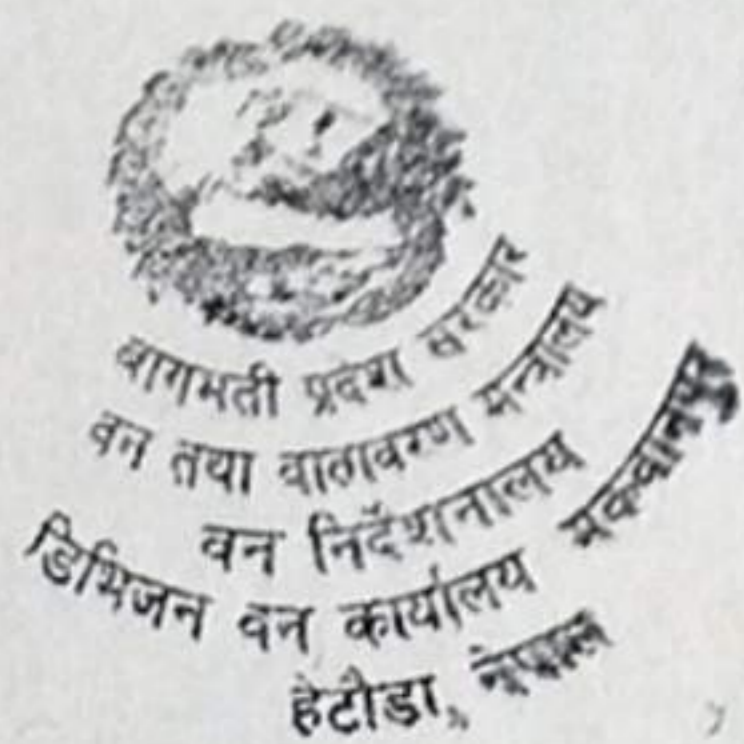 बागमती प्रदेश सरकार
वन तथा वातावरण मन्त्रालय
वन निर्देशनालय
डिभिजन वन कार्यालय मकवानपुर
हेटौडा, नेपाल